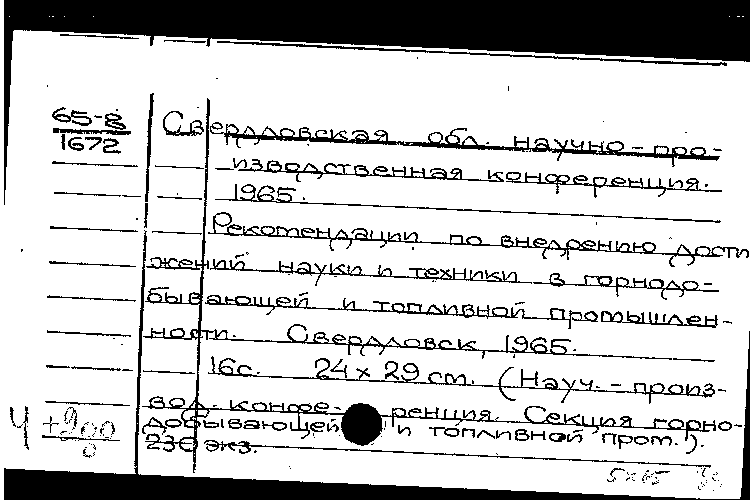 65-8
1672
Свердловская обл. научно-про-
изводственная конференция.
1965.
Рекомендации по внедрению дости
жений науки и техники в горнодо-
бывающей и топливной промышлен-
ности. Свердловск, 1965.
16с. 24 х 29 см. (Науч.-произ-
вод. конфе- ренция. Секция горно-
добывающей и топливной пром.).
230 экз.
Ч +200
5